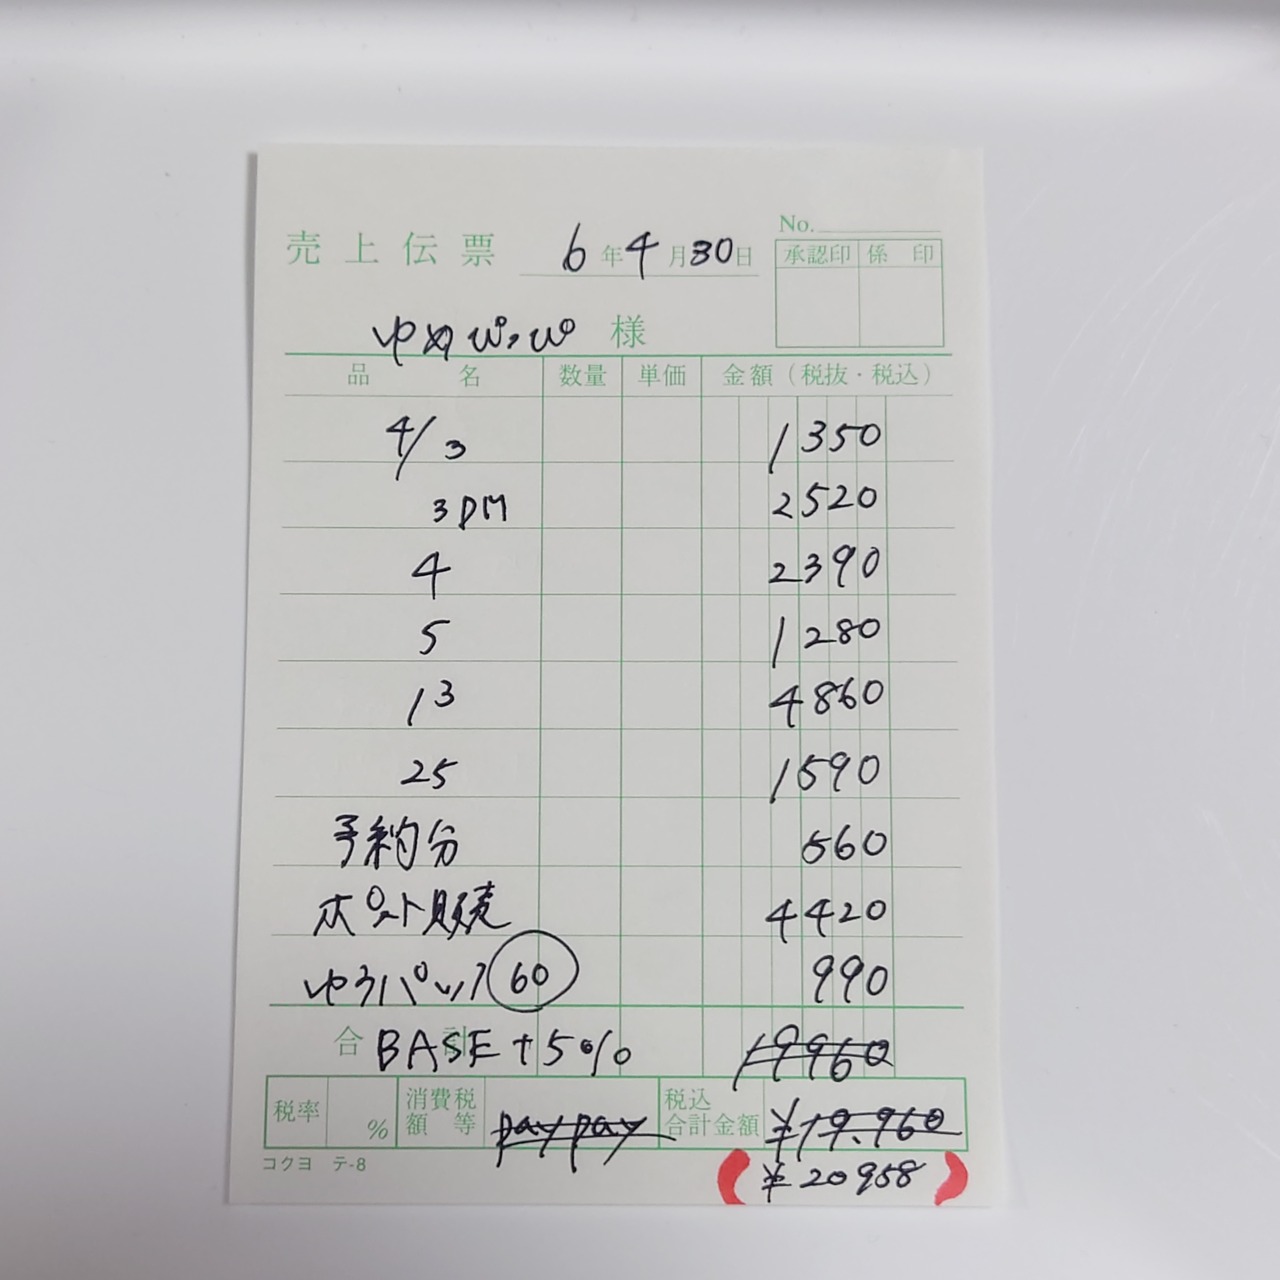 No.
売上伝票 6年4月30日
承認印 係印
ゆめぴっぴ 様
品名 数量 単価 金額（税抜・税込）
4/3 1350
3DM 2520
4 2390
5 1280
13 4860
25 1590
予約分 560
ポスト販売 4420
ゆうパック 60 990
合計 BASE+5% 19960
税率 % 消費税額等 paypay 税込合計金額 ¥19.960
コクヨ テ-8
(¥20958)